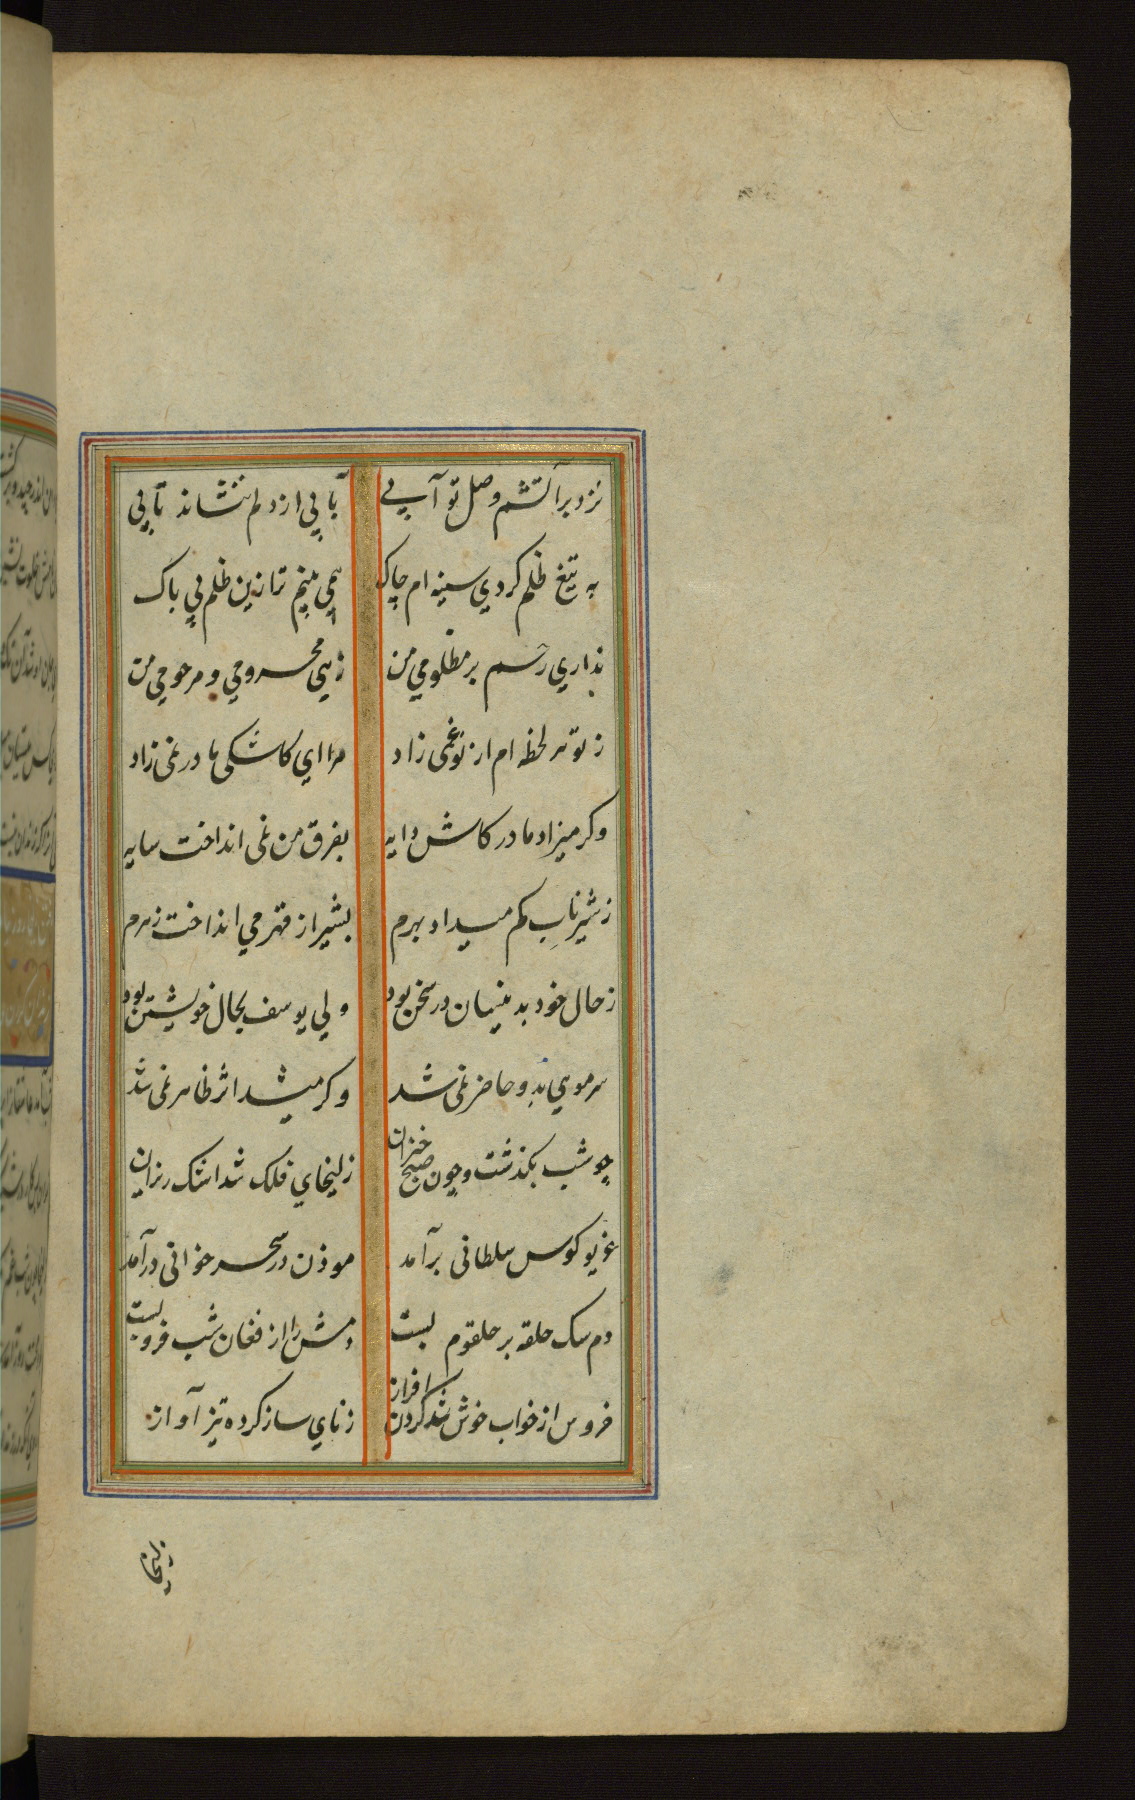 نزد بر آتشم وصل تو آبی
بآبی از دلم ننشاند تابی
به تیغ ظلم کردی سینه ام چاک
همی بینم ترا زین ظلم بی باک
نداری رحم بر مظلومی من
زهی محرومی و مرحومی من
ز تو هر لحظه ام از نو غمی زاد
مرا ای کاشکی مادر نمی زاد
وکر میزاد مادر کاش دایه
بفرق من نمی انداخت سایه
ز شیر ناب کم میداد بهرم
بشیر از قهر می انداخت زهرم
ز حال خود بدینسان در سخن بود
ولی یوسف بحال خویشتن بود
سر موی بدو حاضر نمی شد
وکر میشد اثر ظاهر نمی شد
چو شب بکذشت و چون صبح خیزان
زلیخای فلک شد اشک ریزان
غریو کوس سلطانی بر آمد
موذن در سحر خوانی در آمد
دم سک حلقه بر حلقوم بست
دمش را از فغان شب فرو بست
خروس از خواب خوش شد کردن افراز
ز نای ساز کرده تیز آواز
زلیخا